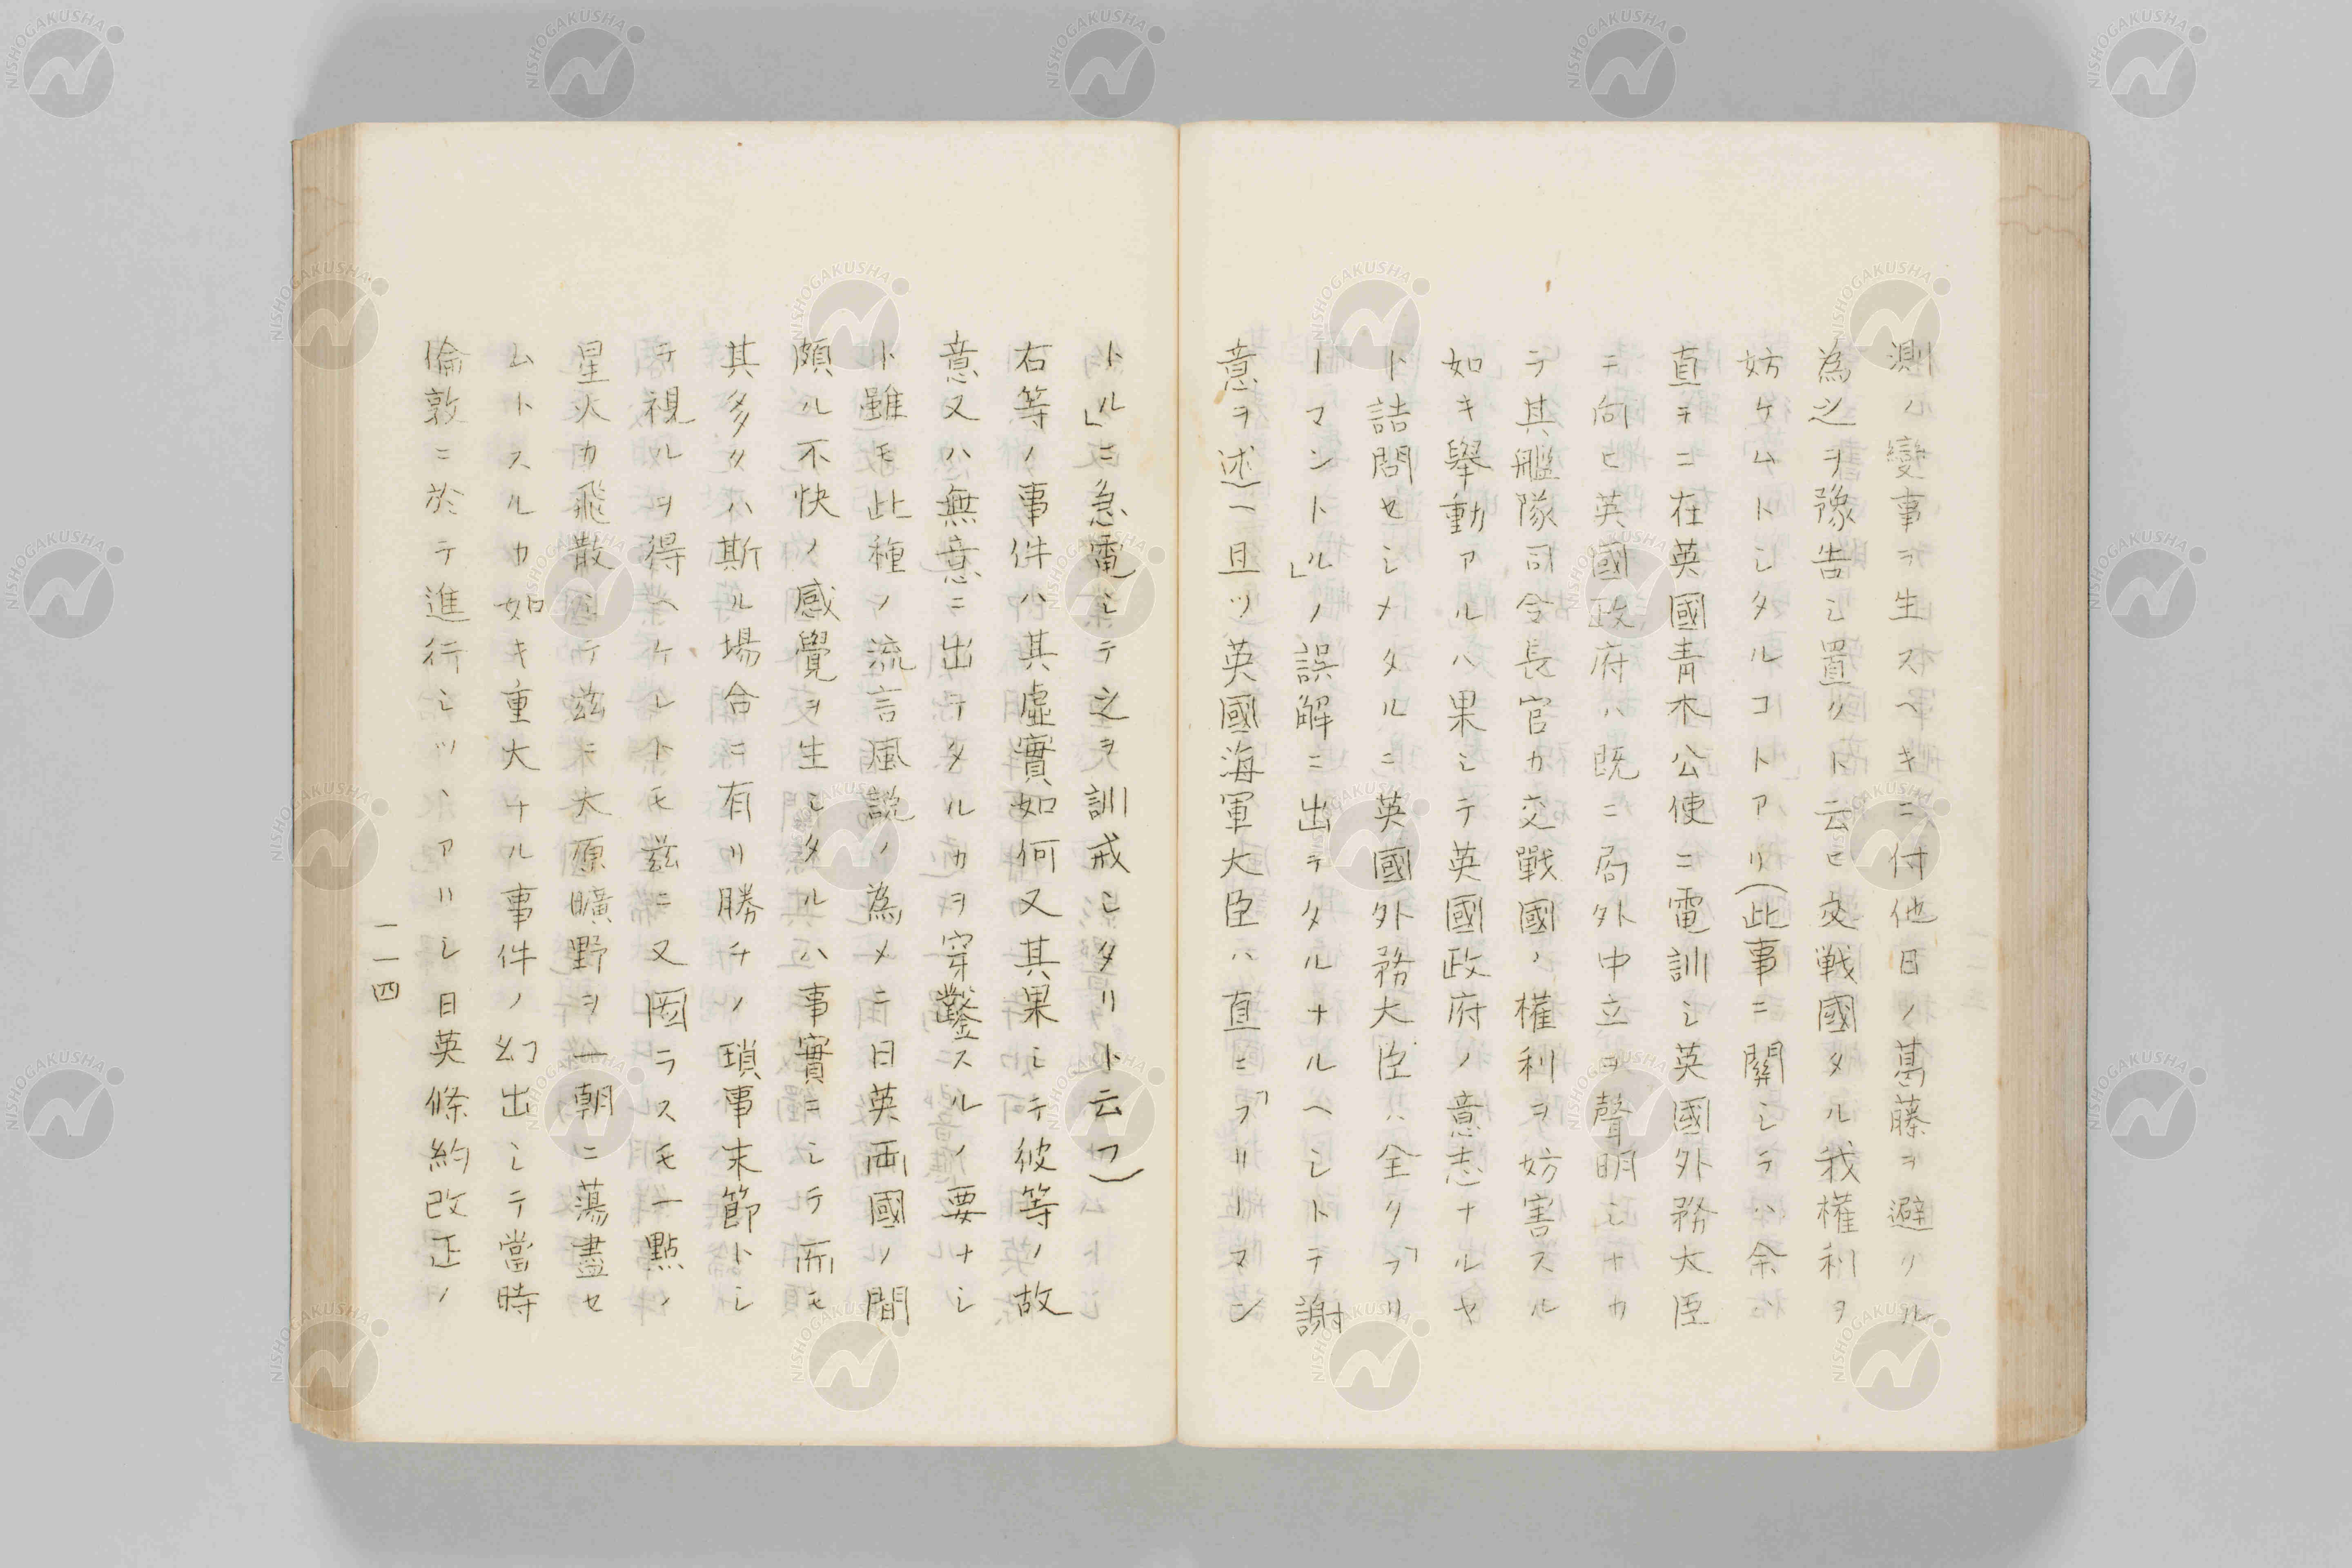 測ノ變事ヲ生スヘキニ付他日ノ葛藤ヲ避クル
為之ヲ豫告シ置クト云ヒ交戦國タル我權利ヲ
妨ケムトシタルコトアリ(此事ニ關シテハ余ハ
直ヲニ在英國青木公使ニ電訓シ英國外務大臣
ニ向ヒ英國政府ハ既ニ局外中立ヲ聲明シナカ
ラ其艦隊司令長官カ交戰國ノ權利ヲ妨害スル
如キ舉動アルハ果シテ英國政府ノ意志ナルヤ
ト詰問セシメタルニ英國外務大臣ハ全ク「フリ
ーマントル」ノ誤解ニ出テタルナルヘシトテ謝
意ヲ述一旦ツ英國海軍大臣ハ直ニ「フリーマン
トル」ニ急電シテ之ヲ訓戒シタリト云フ)
右等ノ事件ハ其虛實如何又其果シテ彼等ノ故
意又ハ無意ニ出テタルカヲ穿鑿スルノ要ナシ
ト雖モ此種ノ流言風説ノ為メニ日英両國ノ間
頗ル不快ノ感覺ヲ生シタルハ事實ニシテ而モ
其多クハ斯ル場合ニ有リ勝チノ瑣事末節トシ
テ視ルヲ得ヘケレトモ茲ニ又図ラスモ一點ノ
星火カ飛散シテ茲ニ大原曠野ヲ一朝ニ蕩盡セ
ムトスルカ如キ重大ナル事件ノ幻出シテ當時
倫敦ニ於テ進行シツヽアリシ日英條約改正ノ
一一四
NISHOGAKUSHA